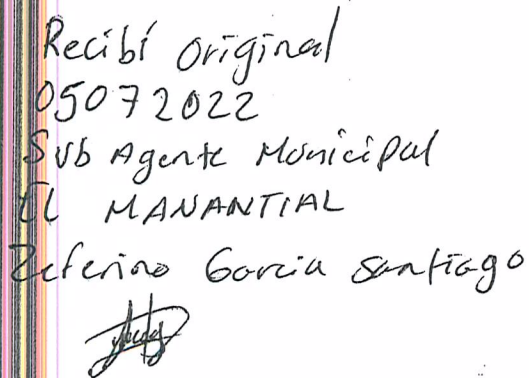 Recibí original
05072022
Sub Agente Municipal
EL MANANTIAL
Zeferino Garcia Santiago